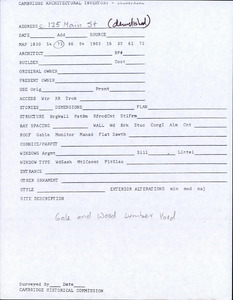 CAMBRIDGE ARCHITECTURAL INVENTORY -
ADDRESS c. 125 Main St (demolished)
DATE Add SOURCE
MAP 1830 54 73 86 94 1903 16 30 61 72
ARCHITECT BP#
BUILDER Cost
ORIGINAL OWNER
PRESENT OWNER
USE Orig Prsnt
ACCESS Wtr RR Trnm
STORIES DIMENSIONS PLAN
STRUCTURE BrgWall PstBm RfrcdCnt StlFrm
BAY SPACING WALL Wd Brk Stuc CorgI Alm Cnt
ROOF Gable Monitor Mansd Flat Swth
CORNICE/PARPET
WINDOWS Argmt Sill Lintel
WINDOW TYPE WdSash MtlCasmt PltGlas
ENTRANCE
OTHER ORNAMENT
STYLE EXTERIOR ALTERATIONS min mod maj
SITE DESCRIPTION
Coal and Wood Lumber Yard
Surveyed By Date
CAMBRIDGE HISTORICAL COMMISSION